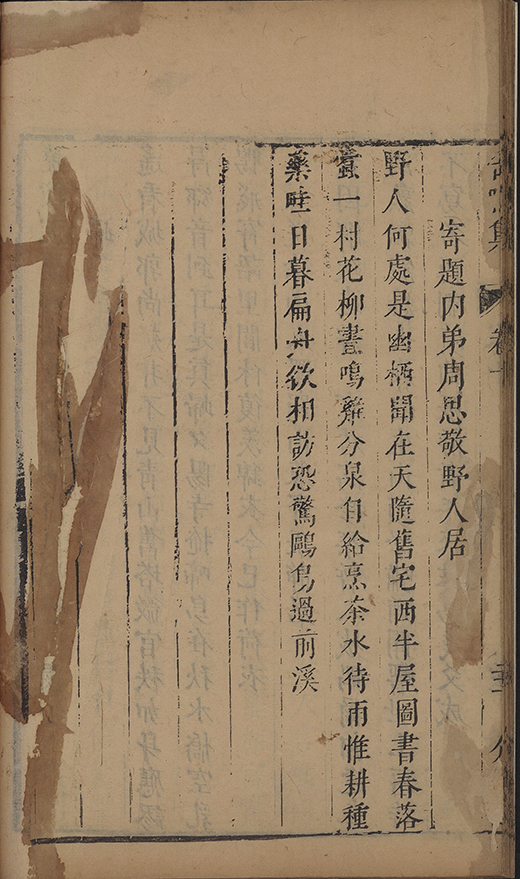 寄題内弟周思敬野人居
野人何處是幽栖聞在天隨舊宅西半屋圖書春落
蠹一村花柳晝鳴雞分泉自給烹茶水待雨惟耕種
藥畦日暮扁舟欲相訪恐驚鷗鳥過前溪